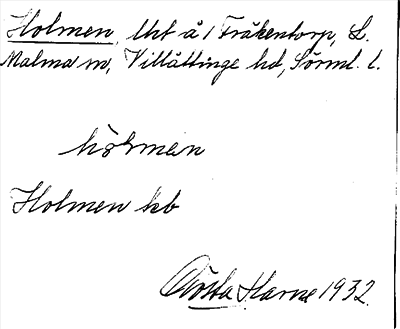 Holmen, lht å 1 Fråkentorp, L.
Malma sn, Villåttinge hd, Sörml. l.
hólmen
Holmen kb
Gösta Harne 1932.